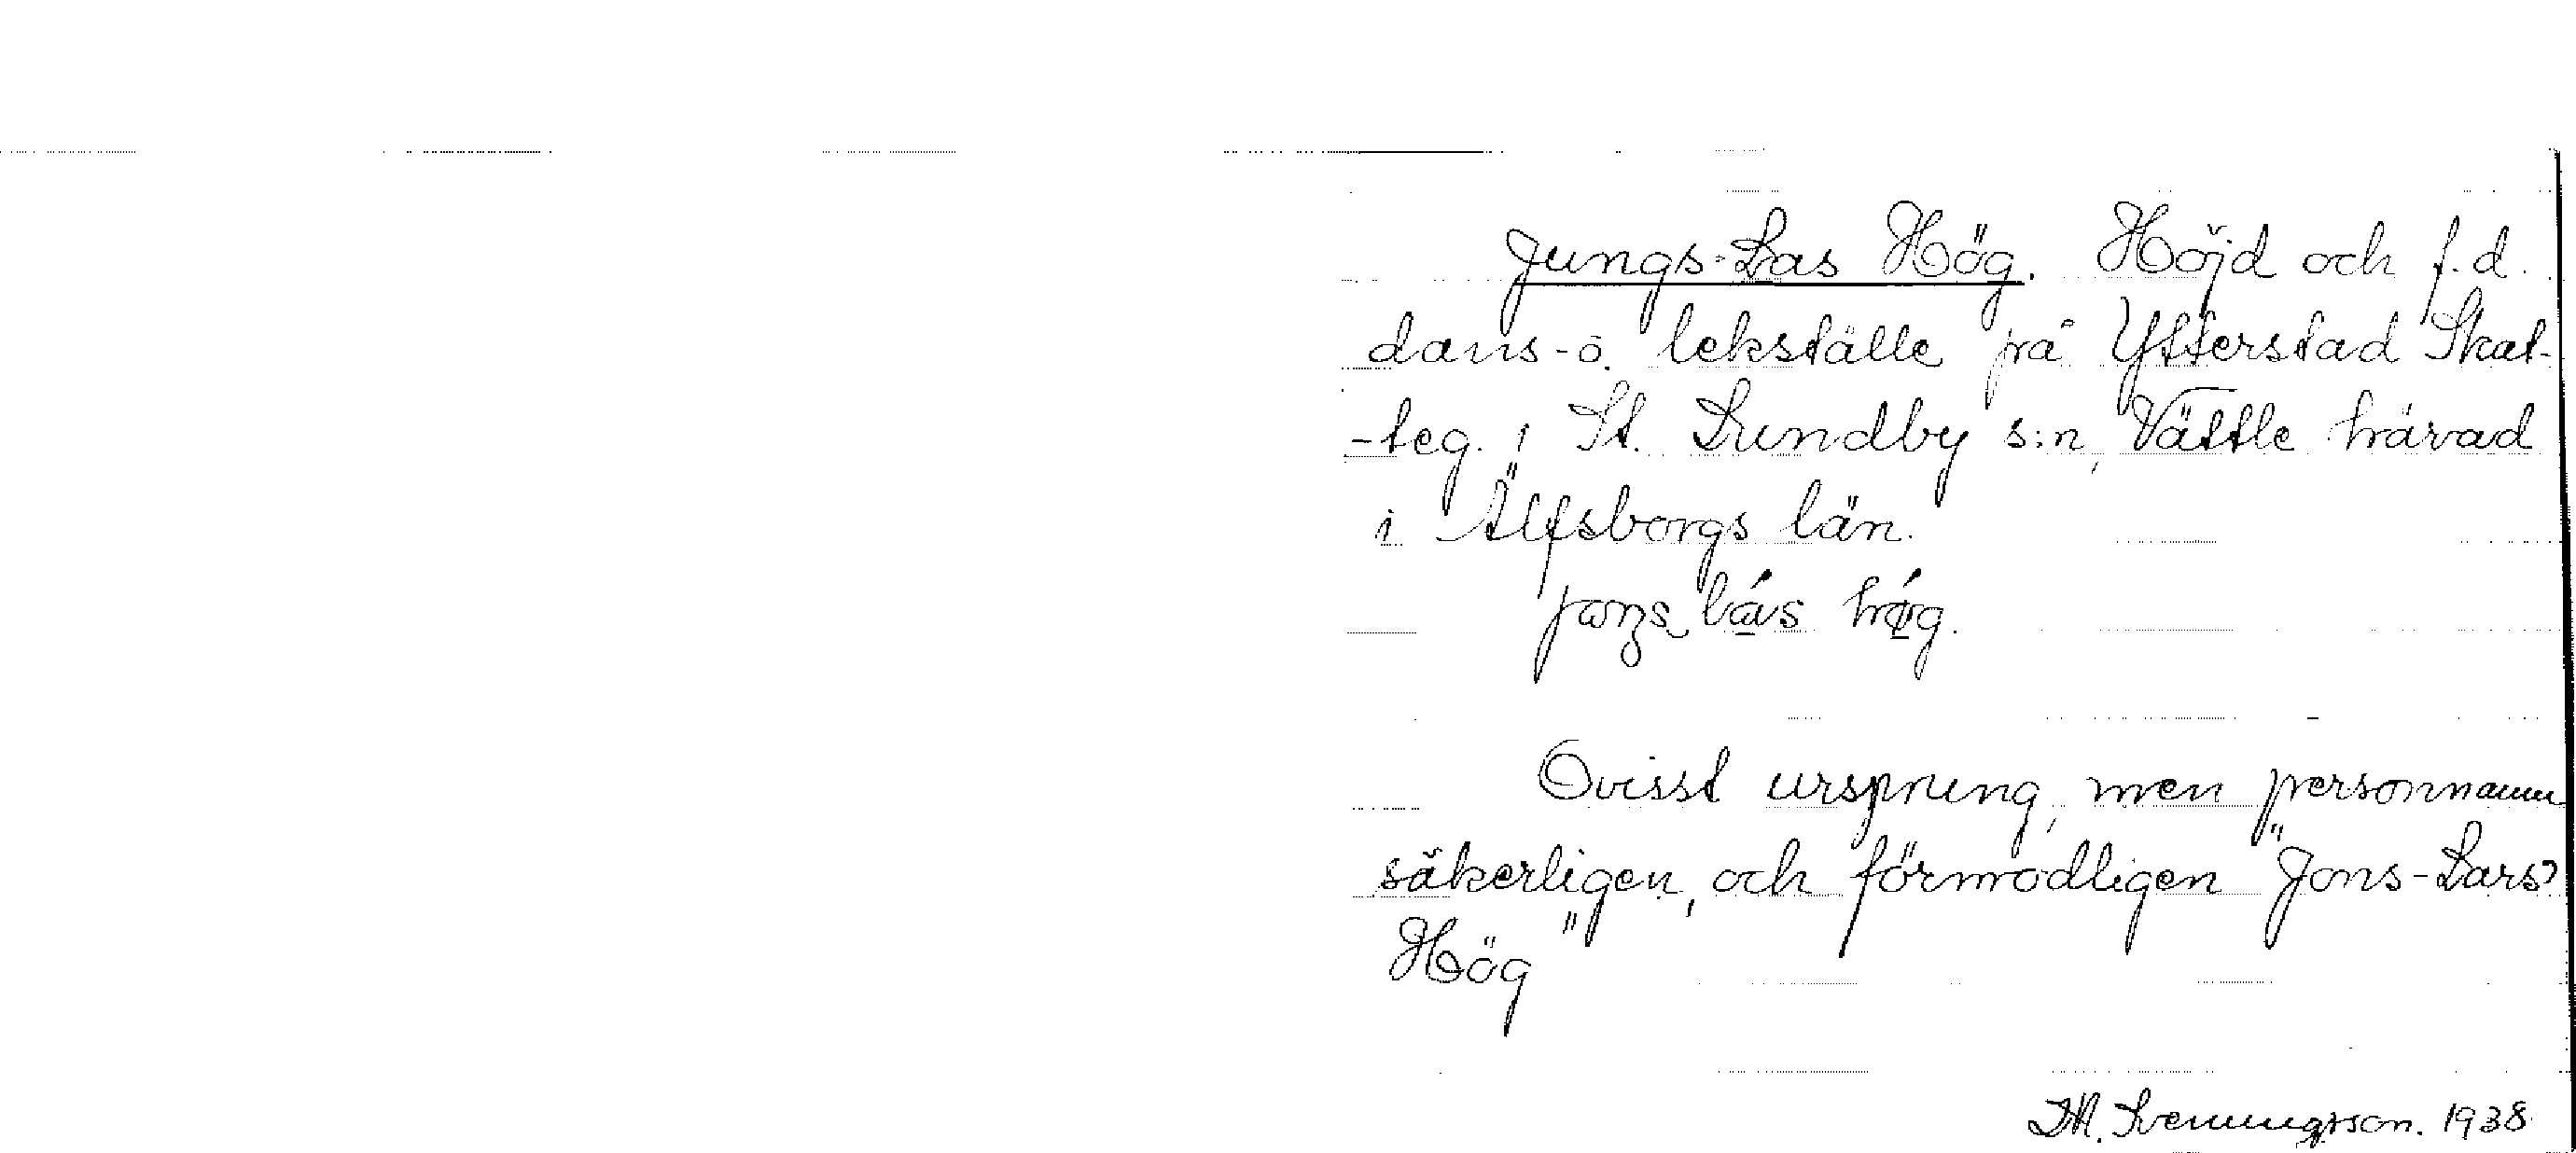 Jungs-Las Hög. Höjd och f.d.
dans-o. lekställe på Ytterstad Skat-
-teg. i St. Lundby s:n, Vättle härad
i Älfsborgs län.
lás hǿg.
Ovisst ursprung, men personnamn
säkerligen, och förmodligen "Jons-Lars'
Hög"
Svenungsson. 1938